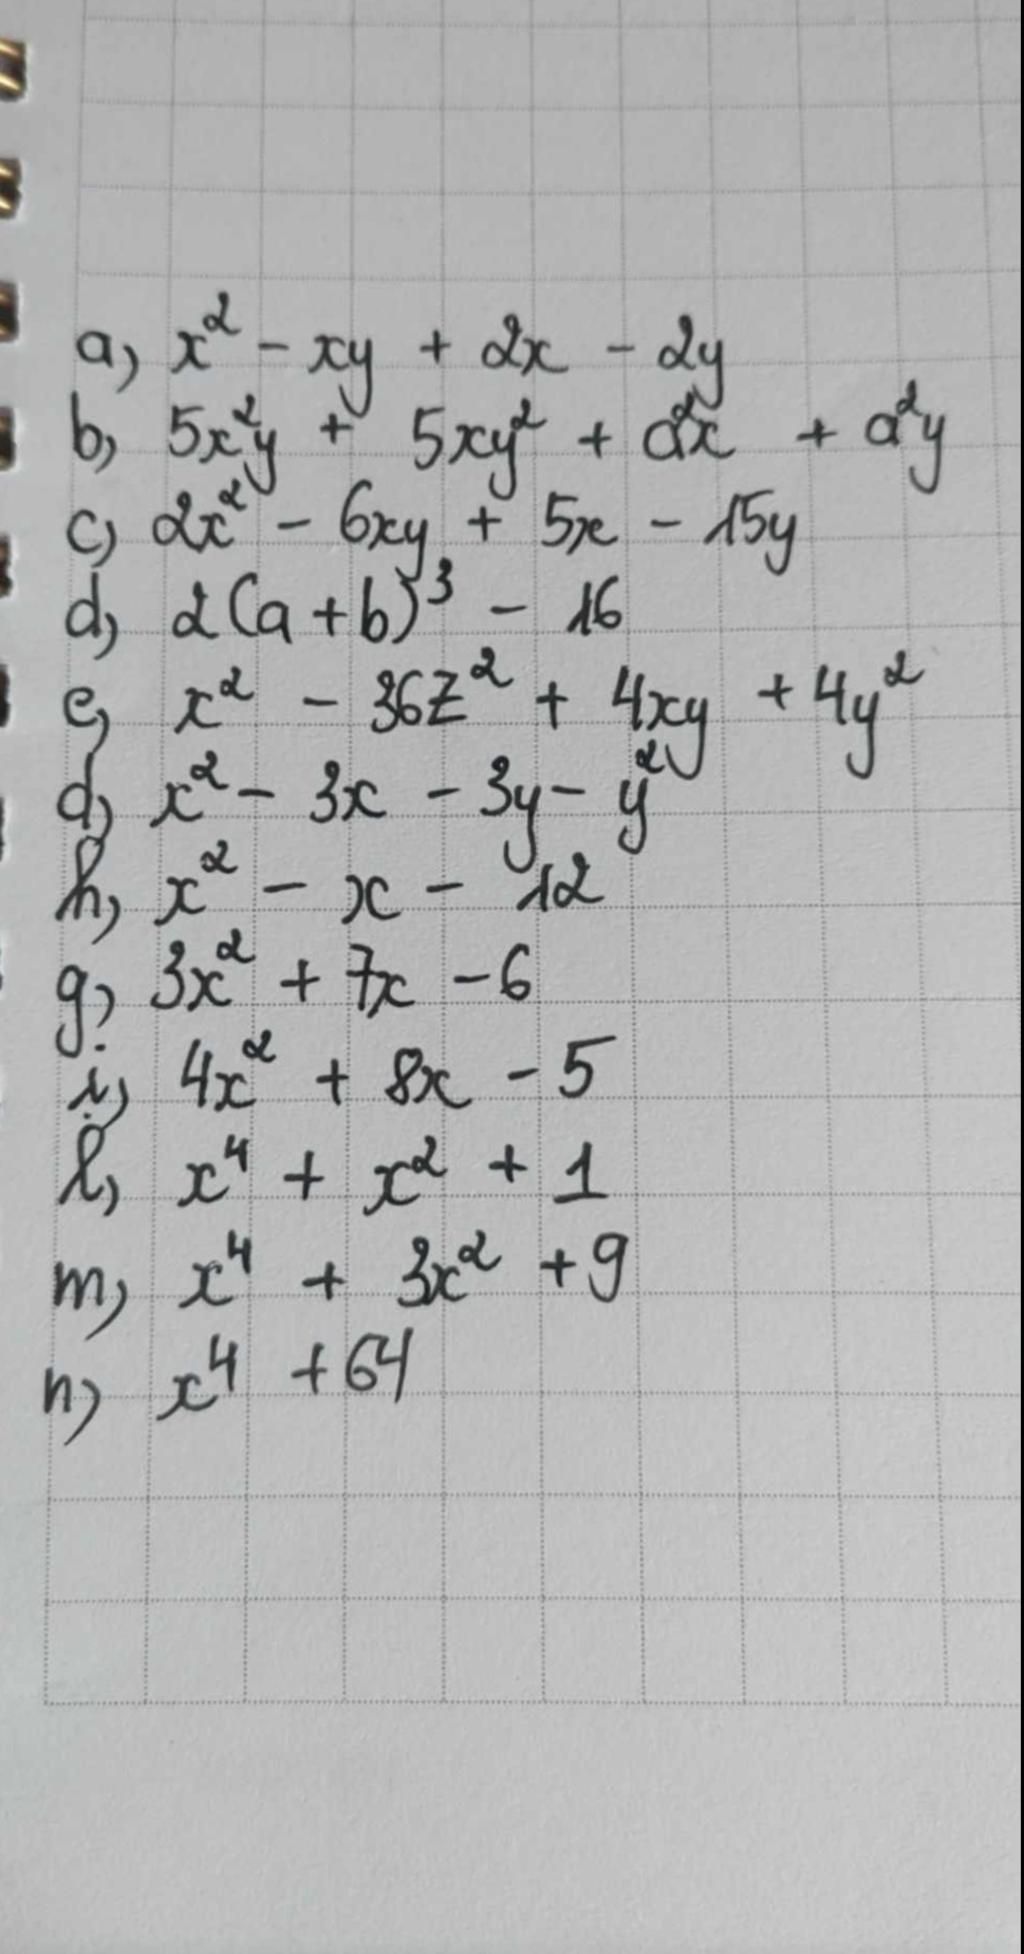 a) x² - xy + 2x - 2y
b) 5x²y + 5xy² + a²x + a²y
c) 2x² - 6xy + 5x - 15y
d) 2(a + b)³ - 16
e) x² - 36z² + 4xy + 4y²
d) x² - 3x - 3y - y²
h) x² - x - 12
g) 3x² + 7x - 6
i) 4x² + 8x - 5
l) x⁴ + x² + 1
m) x⁴ + 3x² + 9
n) x⁴ + 64